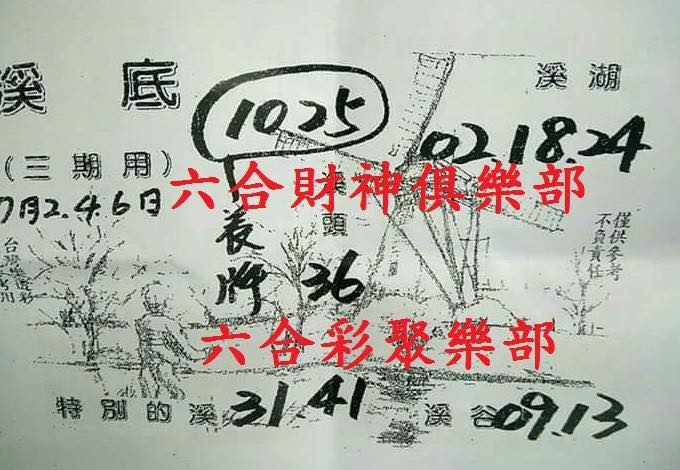 溪底
1025
溪湖
02.18.24
(三期用)
7月2.4.6日
六合財神俱樂部
溪頭
長牌
36
僅供參考
不負責任
六合彩聚樂部
特別的溪 31.41
溪谷 09.13